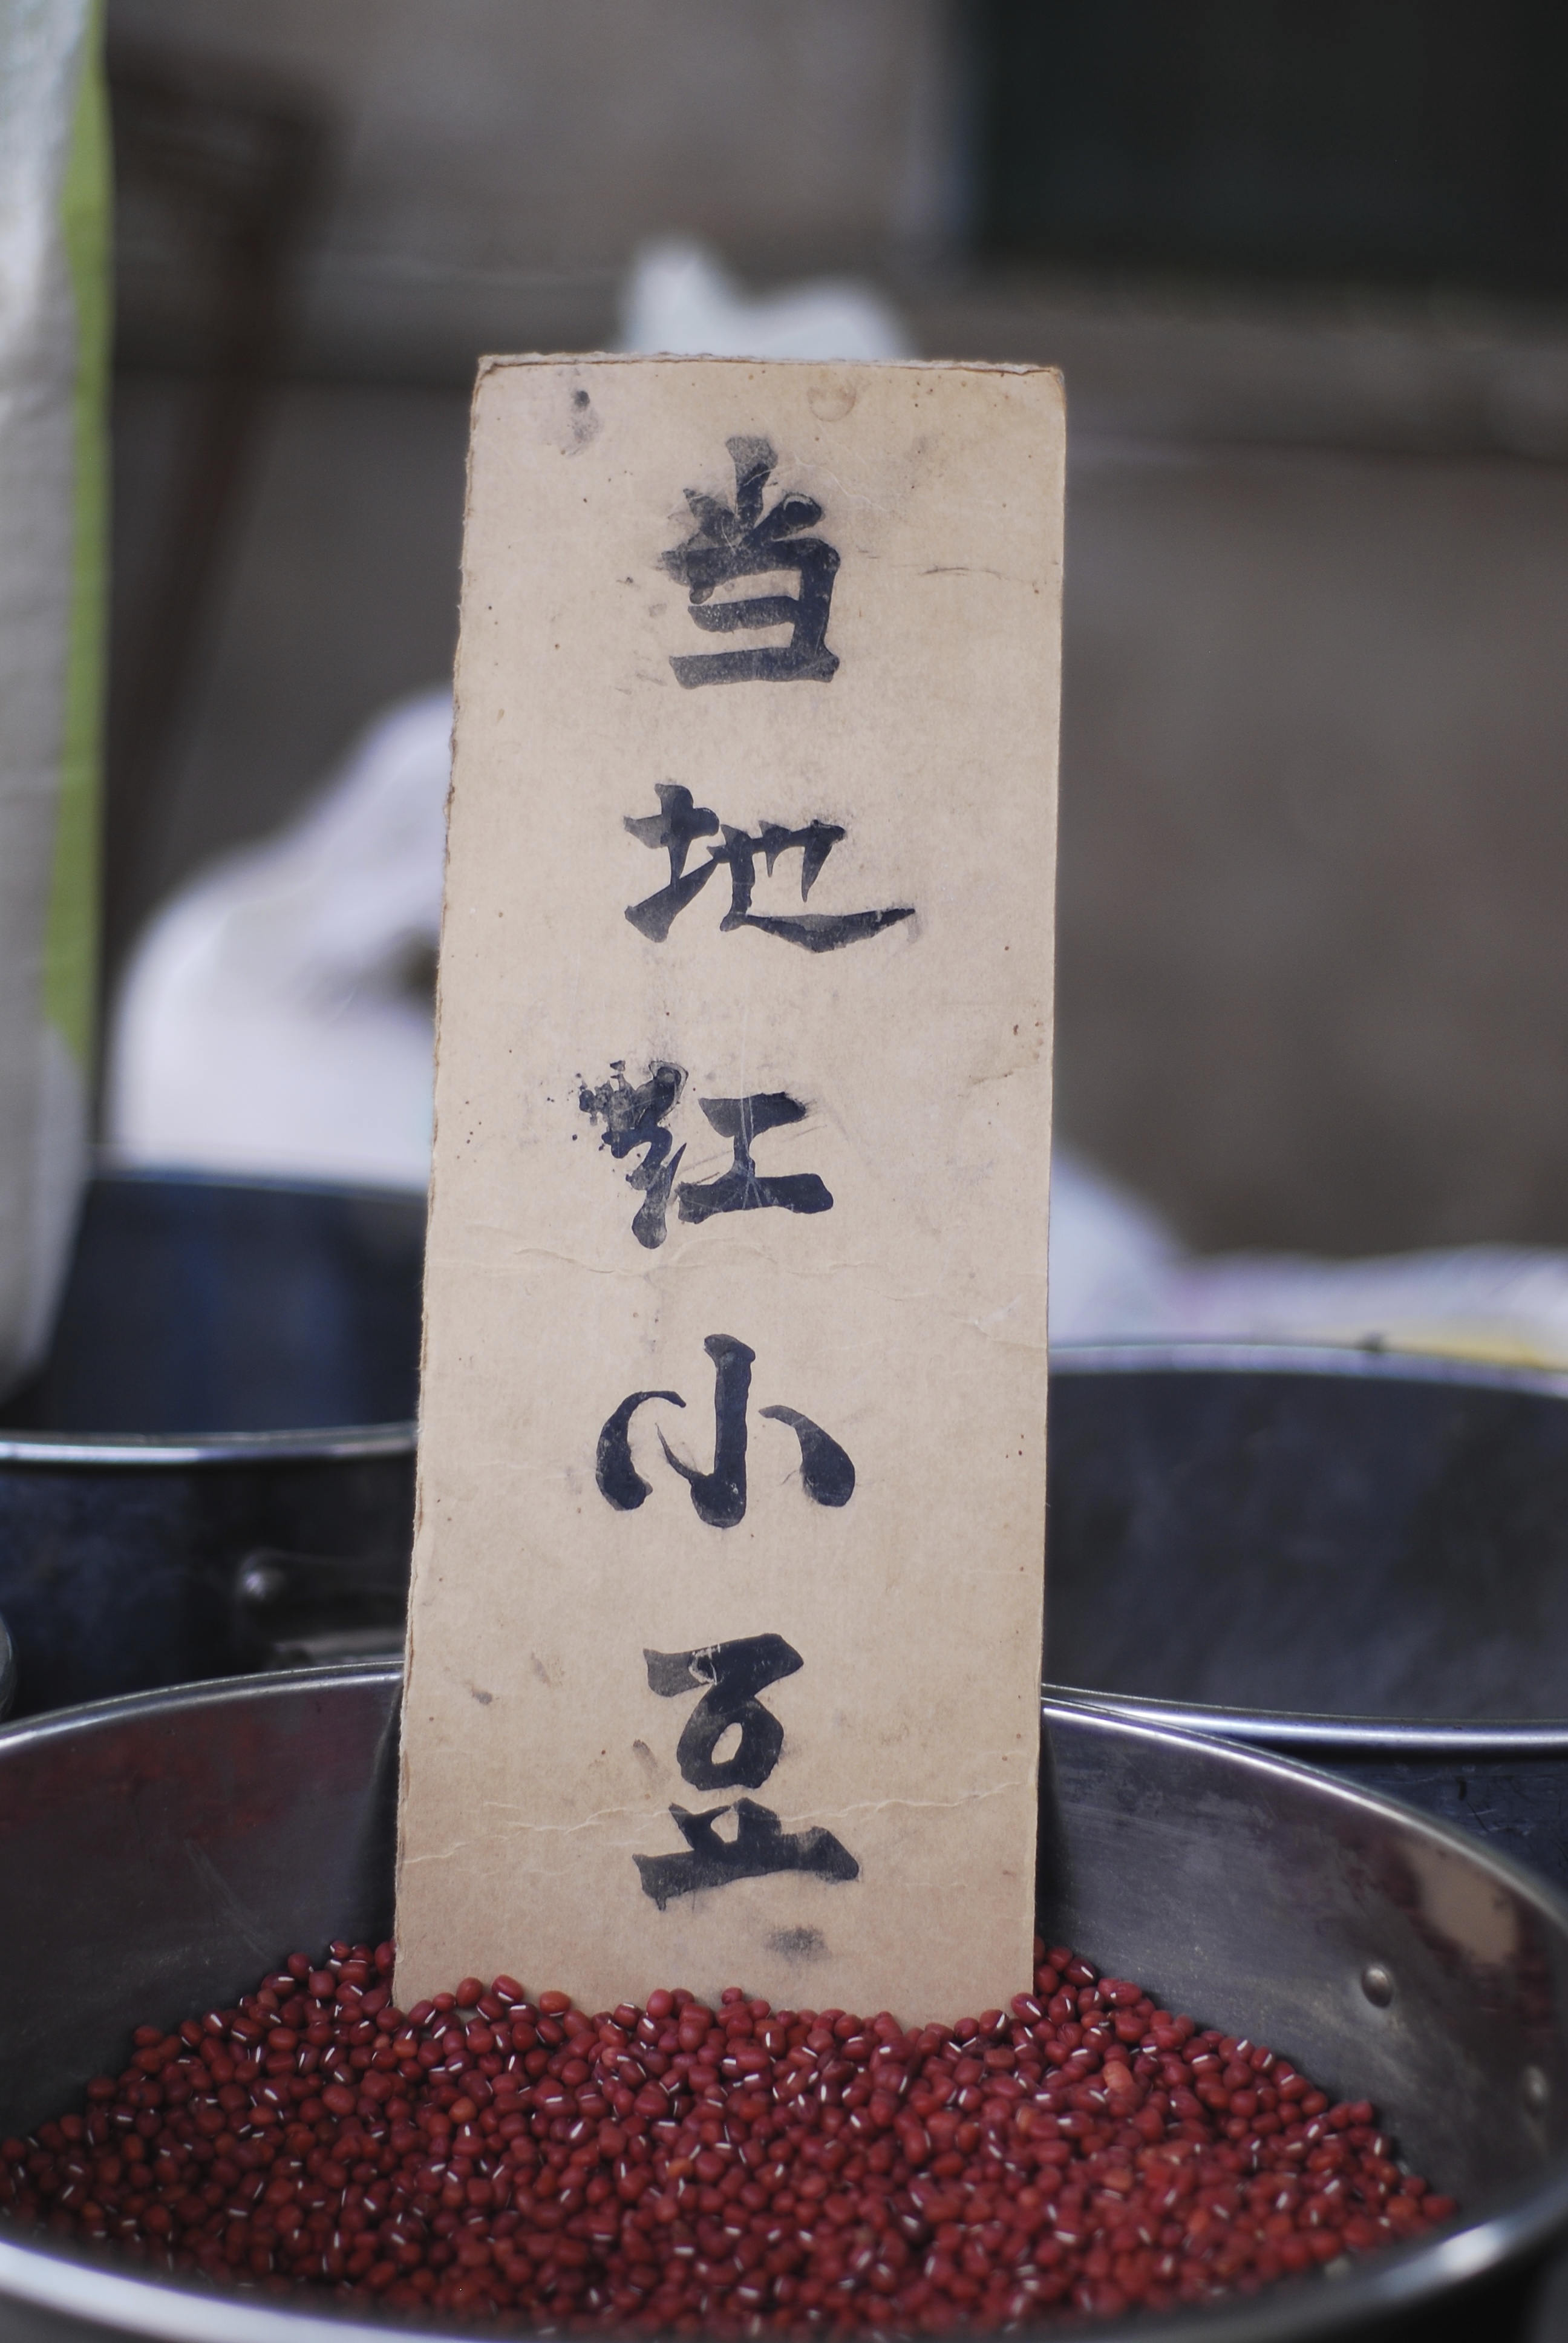 当地红小豆